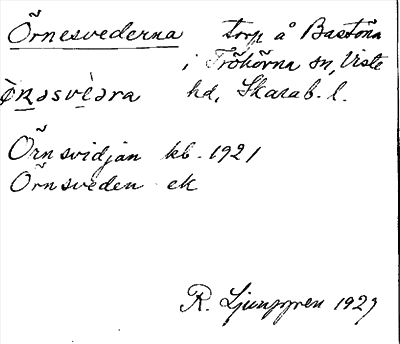 Örnesvederna torp å Bastöna
i Trökörna sn, Viste
hd, Skarab. l.
Örnsvidjan kb. 1921
Örnsveden ek
R. Ljunggren 1927